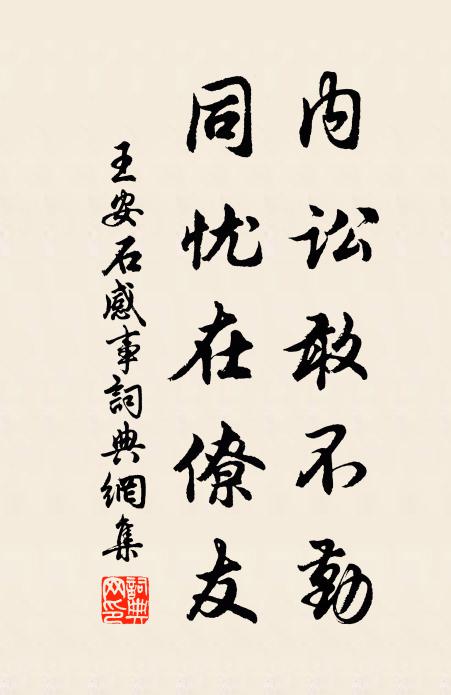 内讼敢不勤
同忧在僚友
王安石感事詞典網集
詞典网印